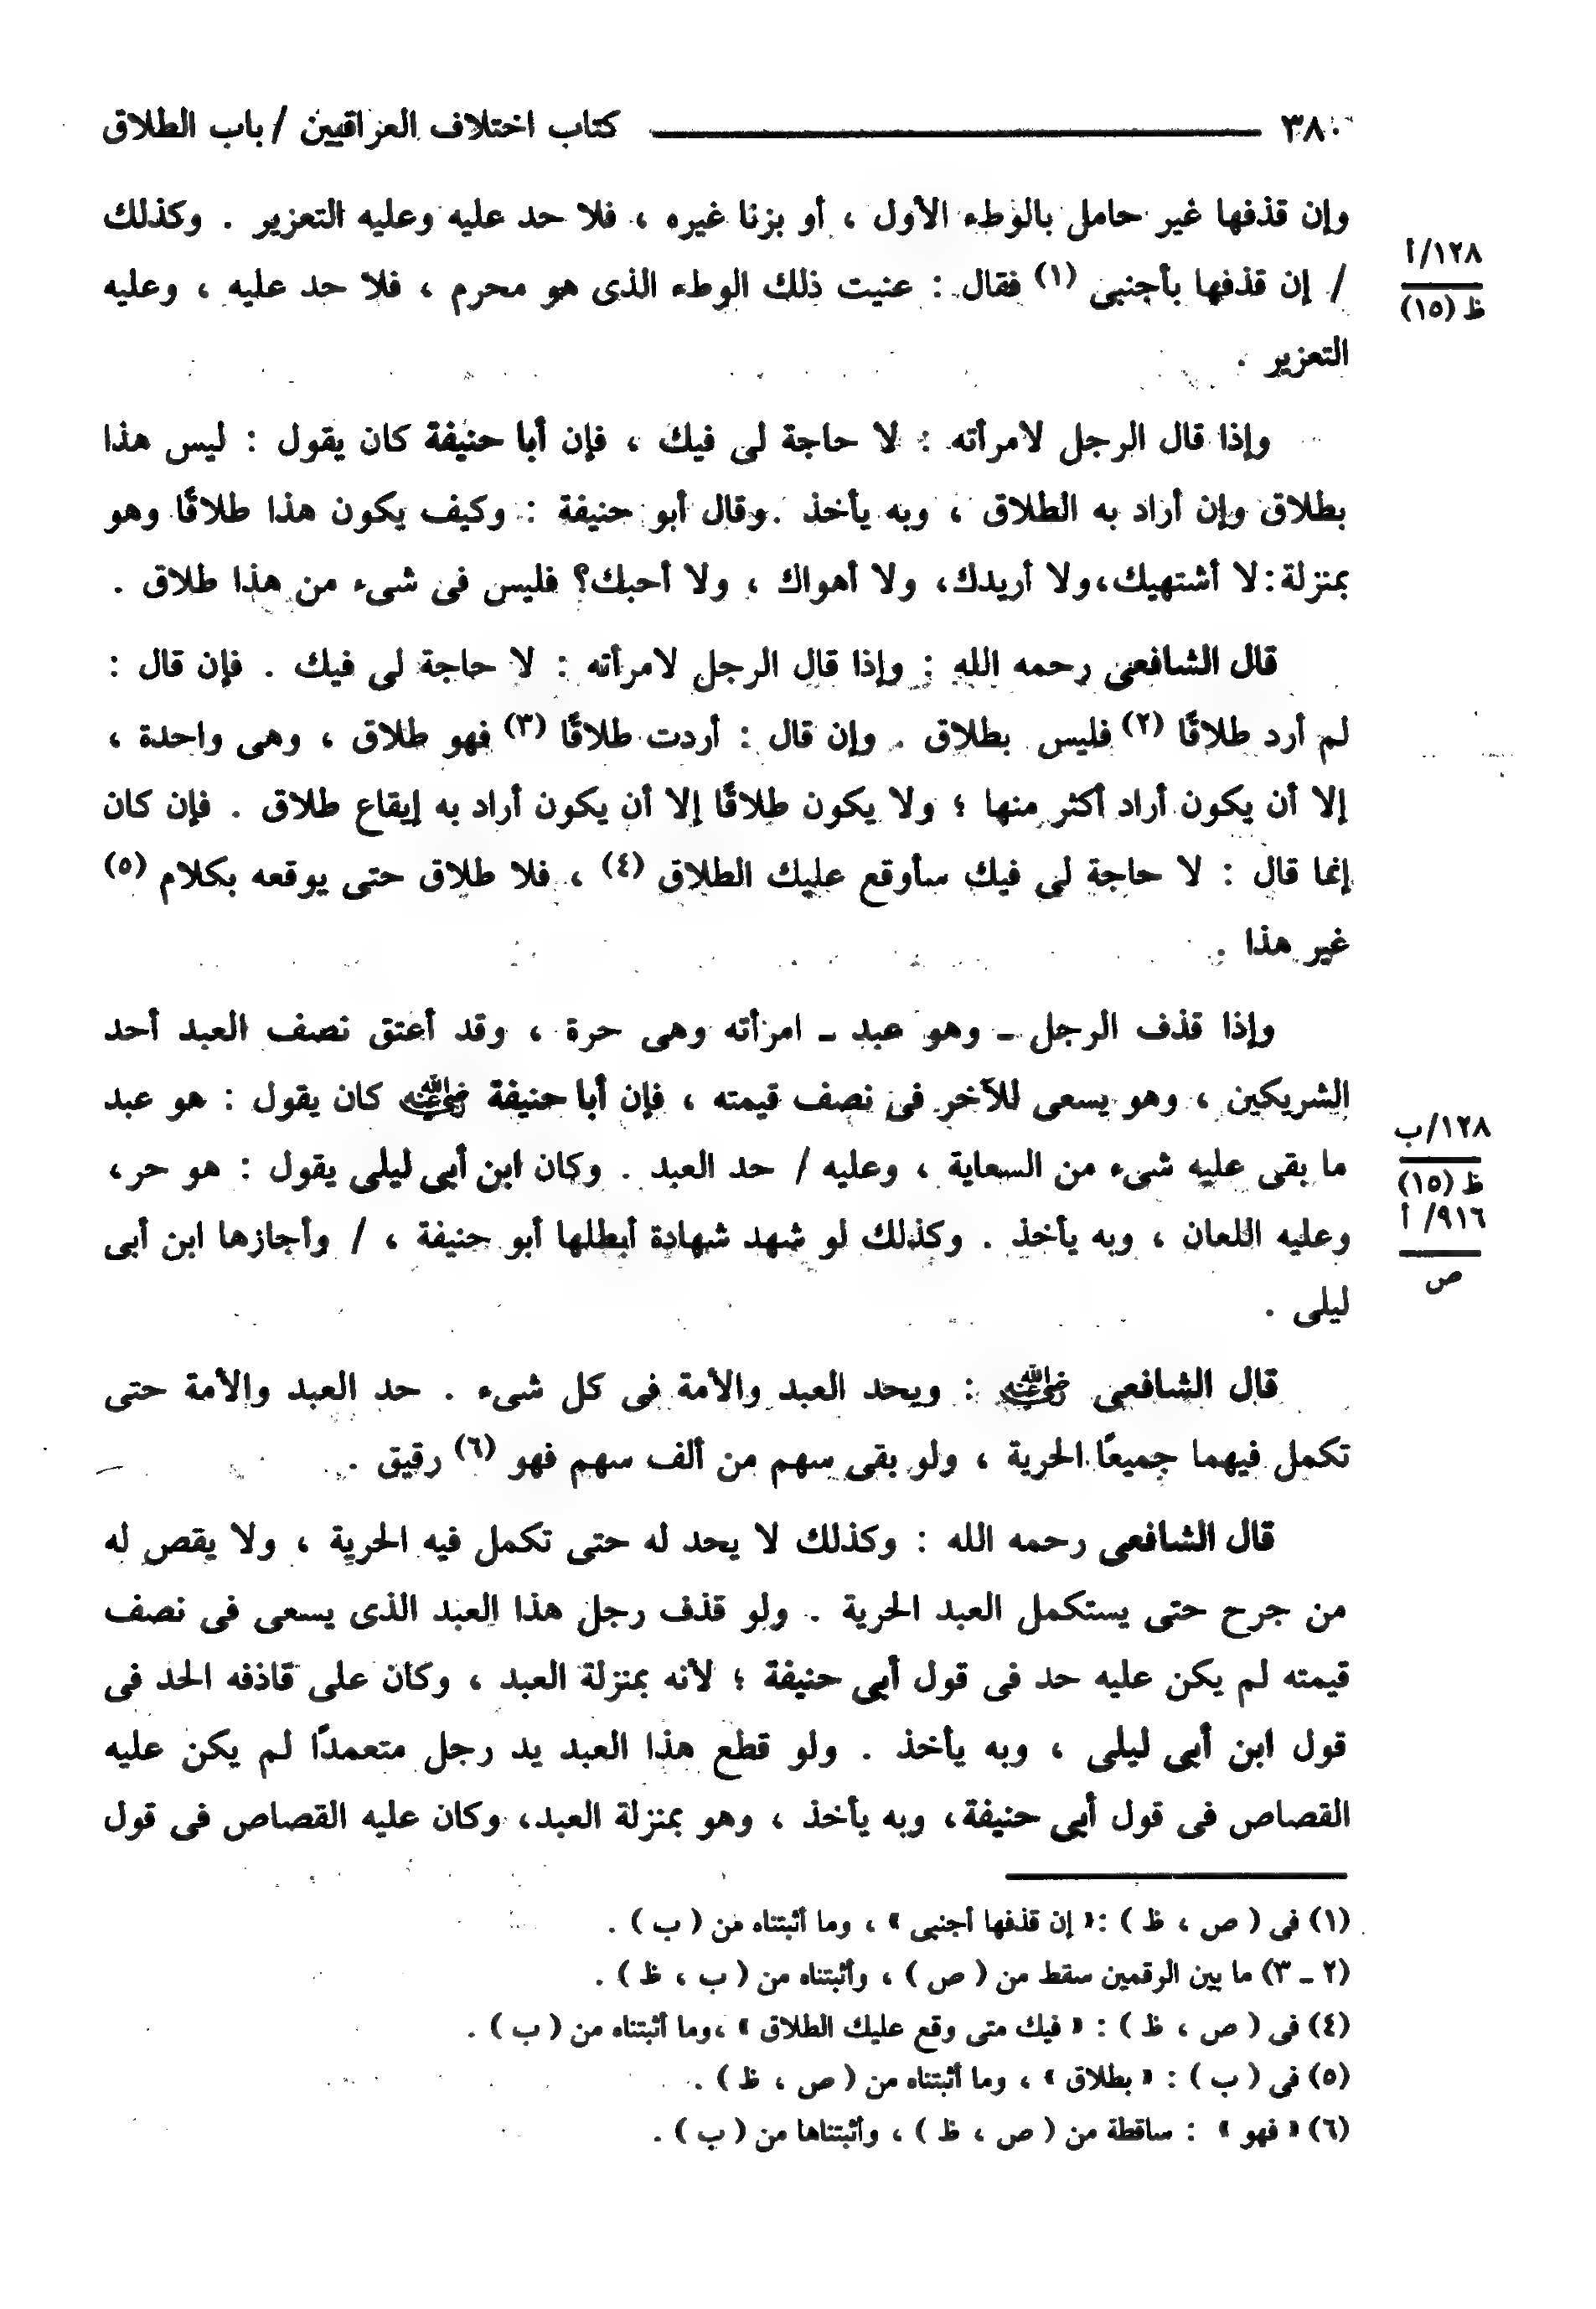 ٣٨٠ كتاب اختلاف العراقيين / باب الطلاق
وإن قذفها غير حامل بالوطء الأول ، أو بزنا غيره ، فلا حد عليه وعليه التعزير . وكذلك
١٢٨/أ
ظ (١٥)
/ إن قذفها بأجنبى (١) فقال : عنيت ذلك الوطء الذى هو محرم ، فلا حد عليه ، وعليه
التعزير .
وإذا قال الرجل لامرأته : لا حاجة لى فيك ، فإن أبا حنيفة كان يقول : ليس هذا
بطلاق وإن أراد به الطلاق ، وبه يأخذ . وقال أبو حنيفة : وكيف يكون هذا طلاقًا وهو
بمنزلة: لا أشتهيك، ولا أريدك، ولا أهواك ، ولا أحبك؟ فليس فى شىء من هذا طلاق .
قال الشافعى رحمه الله : وإذا قال الرجل لامرأته : لا حاجة لى فيك . فإن قال :
لم أرد طلاقًا (٢) فليس بطلاق . وإن قال : أردت طلاقًا (٣) فهو طلاق ، وهى واحدة ،
إلا أن يكون أراد أكثر منها ؛ ولا يكون طلاقًا إلا أن يكون أراد به إيقاع طلاق . فإن كان
إنما قال : لا حاجة لى فيك سأوقع عليك الطلاق (٤) ، فلا طلاق حتى يوقعه بكلام (٥)
غير هذا .
وإذا قذف الرجل ـ وهو عبد ـ امرأته وهى حرة ، وقد أعتق نصف العبد أحد
الشريكين ، وهو يسعى للآخر فى نصف قيمته ، فإن أبا حنيفة رضي الله عنه كان يقول : هو عبد
١٢٨/ب
ظ (١٥)
ما بقى عليه شىء من السعاية ، وعليه / حد العبد . وكان ابن أبى ليلى يقول : هو حر،
٩١٦/ أ
ص
وعليه اللعان ، وبه يأخذ . وكذلك لو شهد شهادة أبطلها أبو حنيفة ، / وأجازها ابن أبى
ليلى .
قال الشافعى رضي الله عنه : ويحد العبد والأمة فى كل شىء . حد العبد والأمة حتى
تكمل فيهما جميعًا الحرية ، ولو بقى سهم من ألف سهم فهو (٦) رقيق .
قال الشافعى رحمه الله : وكذلك لا يحد له حتى تكمل فيه الحرية ، ولا يقص له
من جرح حتى يستكمل العبد الحرية . ولو قذف رجل هذا العبد الذى يسعى فى نصف
قيمته لم يكن عليه حد فى قول أبى حنيفة ؛ لأنه بمنزلة العبد ، وكان على قاذفه الحد فى
قول ابن أبى ليلى ، وبه يأخذ . ولو قطع هذا العبد يد رجل متعمدًا لم يكن عليه
القصاص فى قول أبى حنيفة، وبه يأخذ ، وهو بمنزلة العبد، وكان عليه القصاص فى قول
(١) فى ( ص ، ظ ) : « إن قذفها أجنبى » ، وما أثبتناه من ( ب ) .
(٢ ـ ٣) ما بين الرقمين سقط من ( ص ) ، وأثبتناه من ( ب ، ظ ) .
(٤) فى ( ص ، ظ ) : « فيك متى وقع عليك الطلاق » ، وما أثبتناه من ( ب ) .
(٥) فى ( ب ) : « بطلاق » ، وما أثبتناه من ( ص ، ظ ) .
(٦) « فهو » : ساقطة من ( ص ، ظ ) ، وأثبتناها من ( ب ) .